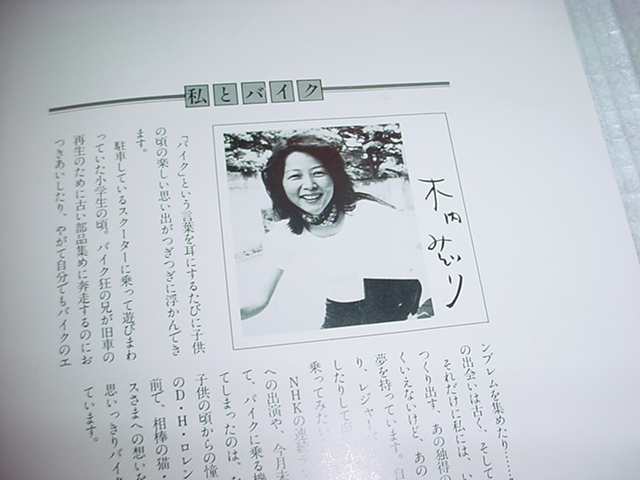 私とバイク
木内みどり
「バイク」という言葉を耳にするたびに子供
の頃の楽しい思い出がつぎつぎに浮かんでき
ます。
駐車しているスクーターに乗って遊びまわ
っていた小学生の頃。バイク狂の兄が旧車の
再生のために古い部品集めに奔走するのにお
つきあいしたり、やがて自分でもバイクのエ
ンブレムを集めたり……
の出会いは古く、そして
それだけに私には、い
つくり出す、あの独得の
くいえないけど、あの
夢を持っています。自
り、レジャーバ
したりして
乗ってみた
NHKの連続
への出演や、今月末
て、バイクに乗る機
てしまったのは、
子供の頃からの憧
のD・H・ロレン
前で、相棒の猫・
スさまへの想いを
思いっきりバイク
ています。